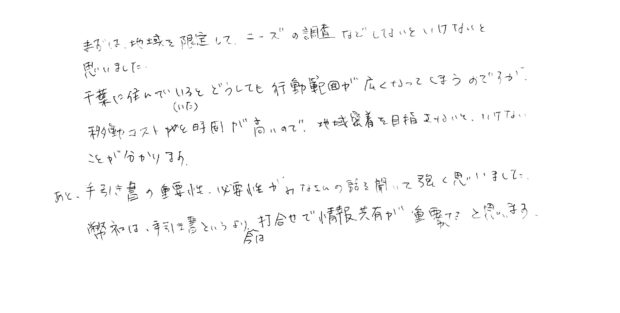 まずは、地域を限定して、ニーズの調査などしないといけないと
思いました。
千葉に住んでいるとどうしても行動範囲が広くなってしまうのですが、
(いた)
移動コストや時間が高いので、地域密着を目指さないと、いけない
ことが分かります。
あと、手引き書の重要性、必要性がみなさんの話を聞いて強く思いました。
弊社は、手引き書というより、打合せで情報共有が重要だと思います。
今は